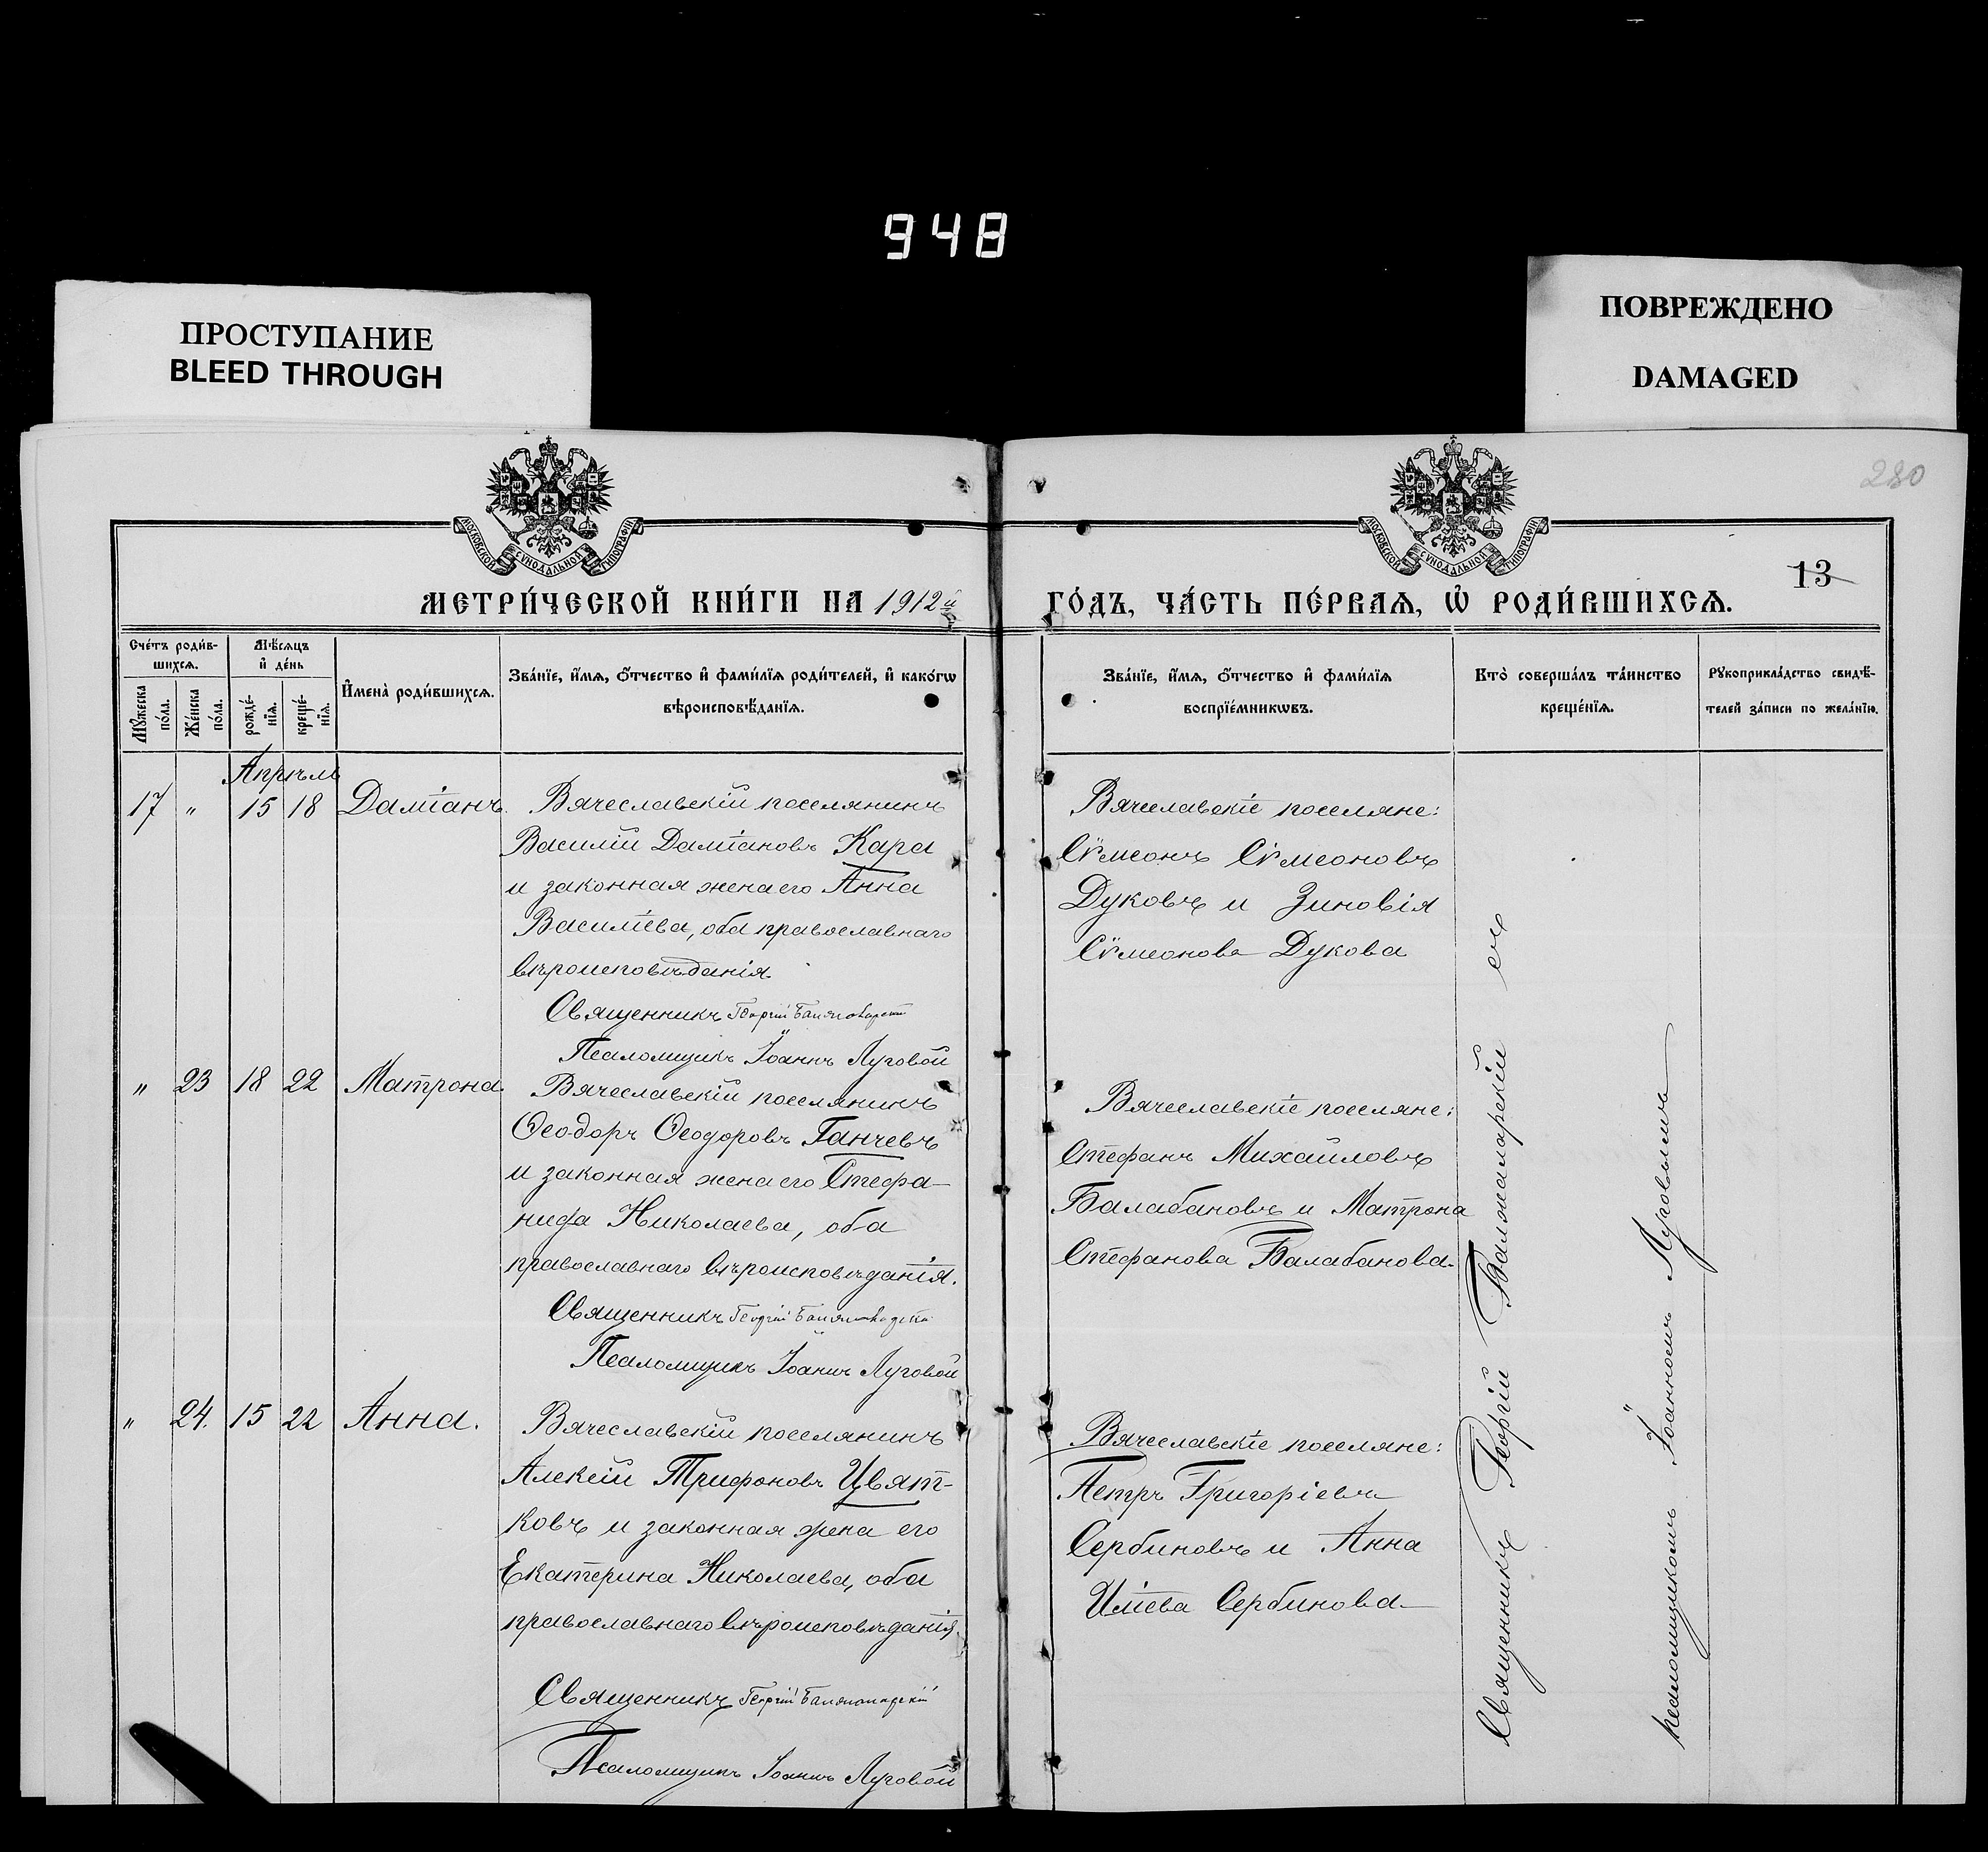 948
ПРОСТУПАНИЕ
BLEED THROUGH
ПОВРЕЖДЕНО
DAMAGED
МОСКОВСКОЙ СѴНОДАЛЬНОЙ ТИПОГРАФІИ
МОСКОВСКОЙ СѴНОДАЛЬНОЙ ТИПОГРАФІИ
280
13
МЕТРИ́ЧЕСКОЙ КНИ́ГИ НА 1912й
ГО́ДЪ, ЧА́СТЬ ПЕ́РВАѦ, Ѡ҆ РОДИ́ВШИХСѦ.
Сче́тъ роди́в-
шихсѧ.
Мꙋ́жеска
по́ла.
Же́нска
по́ла.
Мѣ́сѧцъ
и҆ де́нь
рожде́-
нїѧ.
креще́-
нїѧ.
И҆мена̀ роди́вшихсѧ.
Зва́нїе, и҆́мѧ, ѻ҆́тчество и҆ фами́лїѧ роди́телей, и҆ како́гѡ
вѣроисповѣ́данїѧ.
Зва́нїе, и҆́мѧ, ѻ҆́тчество и҆ фами́лїѧ
воспрїе́мникѡвъ.
Кто̀ соверша́лъ та́инство
креще́нїѧ.
Рꙋкоприкла́дство свидѣ́-
телей за́писи по жела́нїю.
Апрѣль
17 " 15 18 Даміанъ.
Вячеславскій поселянинъ
Василій Даміановъ Кара
и законная жена его Анна
Василіева, оба православнаго
вѣроисповѣданія
Священникъ Георгій
Псаломщикъ Іоаннъ Луговой
Вячеславскіе поселяне:
Сѵмеонъ Сѵмеоновъ
Дуковъ и Зиновія
Сѵмеонова Дукова
" 23 18 22 Матрона.
Вячеславскій поселянинъ
Ѳеодоръ Ѳеодоровъ Ганчевъ
и законная жена его Стефа-
нида Николаева, оба
православнаго вѣроисповѣданія.
Священникъ Георгій
Псаломщикъ Іоаннъ Луговой
Вячеславскіе поселяне:
Стефанъ Михайловъ
Балабановъ и Матрона
Стефанова Балабанова.
" 24. 15 22 Анна.
Вячеславскій поселянинъ
Алексій Трифоновъ Цвят-
ковъ и законная жена его
Екатерина Николаева, оба
православнаго вѣроисповѣданія.
Священникъ Георгій
Псаломщикъ Іоаннъ Луговой
Вячеславскіе поселяне:
Петръ Григоріевъ
Сербиновъ и Анна
Иліева Сербинова
Священникъ Георгій съ
псаломщикомъ Іоанномъ Луговымъ